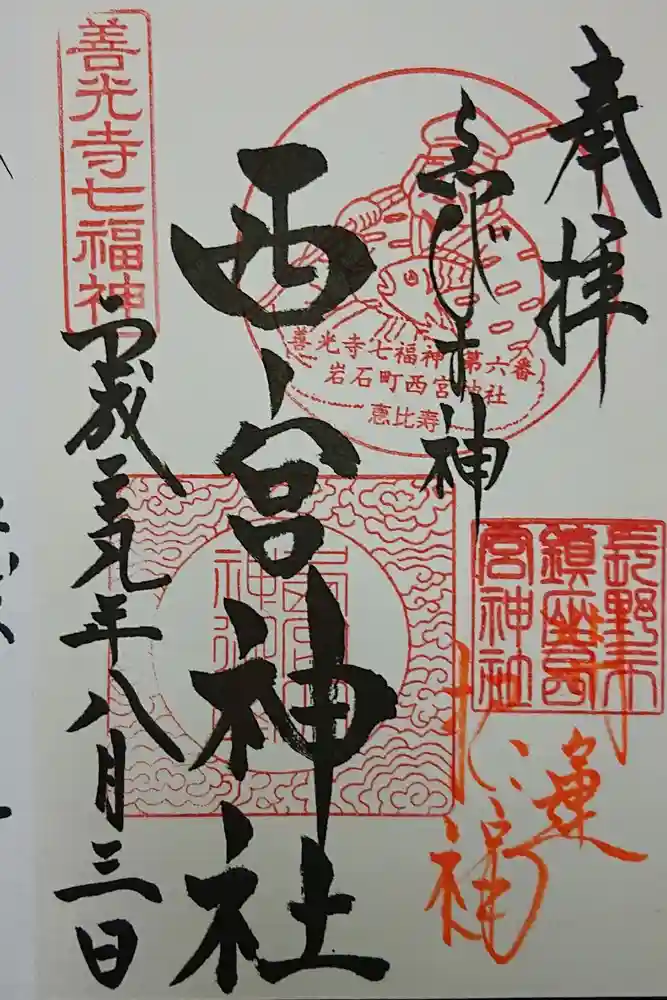 奉拝
ゑびす神
西ノ宮神社
平成三九年八月三日
善光寺七福神
善光寺七福神 第六番
岩石町西宮神社
恵比寿
長野市
鎮座西
宮神社
運
福